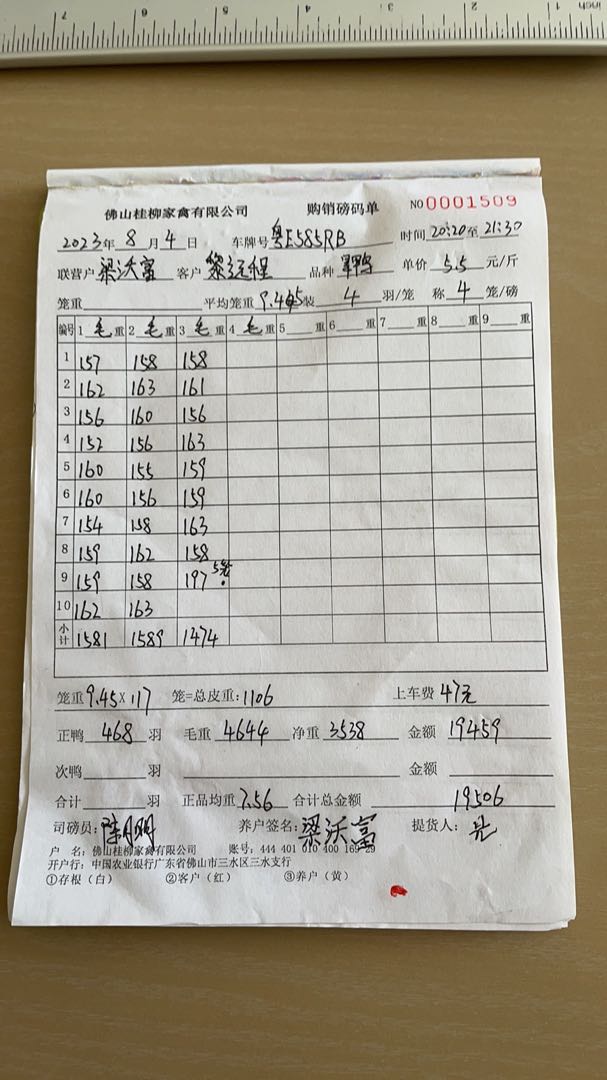 inch 1 2 3 4 5 6 7
佛山桂柳家禽有限公司 购销磅码单 NO 0001509
2023年 8 月 4 日 车牌号 粤E585RB 时间 20:20 至 21:30
联营户 梁沃富 客户 黎远程 品种 单价 5.5 元/斤
笼重 平均笼重 9.45 装 4 羽/笼 称 4 笼/磅
编号 1 毛 重 2 毛 重 3 毛 重 4 毛 重 5 重 6 重 7 重 8 重 9 重
1 157 158 158
2 162 163 161
3 156 160 156
4 152 156 163
5 160 155 159
6 160 156 159
7 154 158 163
8 159 162 158
9 159 158 197 5笼
10 162 163
小计 1581 1589 1474
笼重 9.45 × 117 笼=总皮重: 1106 上车费 47元
正鸭 468 羽 毛重 4644 净重 3538 金额 19459
次鸭 羽 金额
合计 羽 正品均重 7.56 合计总金额 19506
司磅员: 养户签名: 梁沃富 提货人:
户 名: 佛山桂柳家禽有限公司 账号: 444 401 010 400 169 29
开户行: 中国农业银行广东省佛山市三水区三水支行
①存根(白) ②客户(红) ③养户(黄)